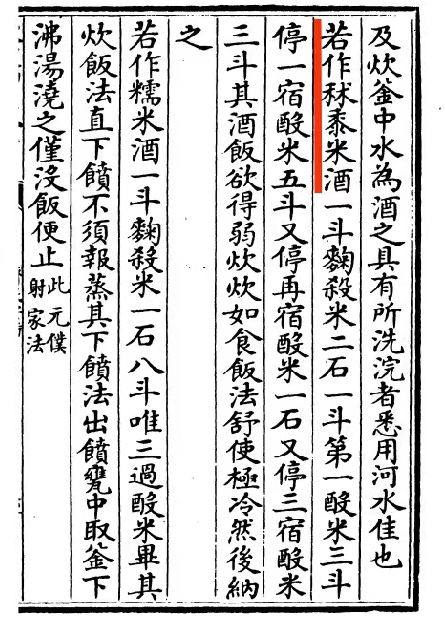 及炊釜中水為酒之具有所洗浣者悉用河水佳也
若作秫黍米酒一斗麴殺米二石一斗第一酘米三斗
停一宿酘米五斗又停再宿酘米一石又停三宿酘米
三斗其酒飯欲得弱炊炊如食飯法舒使極冷然後納
之
若作糯米酒一斗麴殺米一石八斗唯三過酘米畢其
炊飯法直下饙不須報蒸其下饙法出饙甕中取釜下
沸湯澆之僅沒飯便止此元僕
射家法